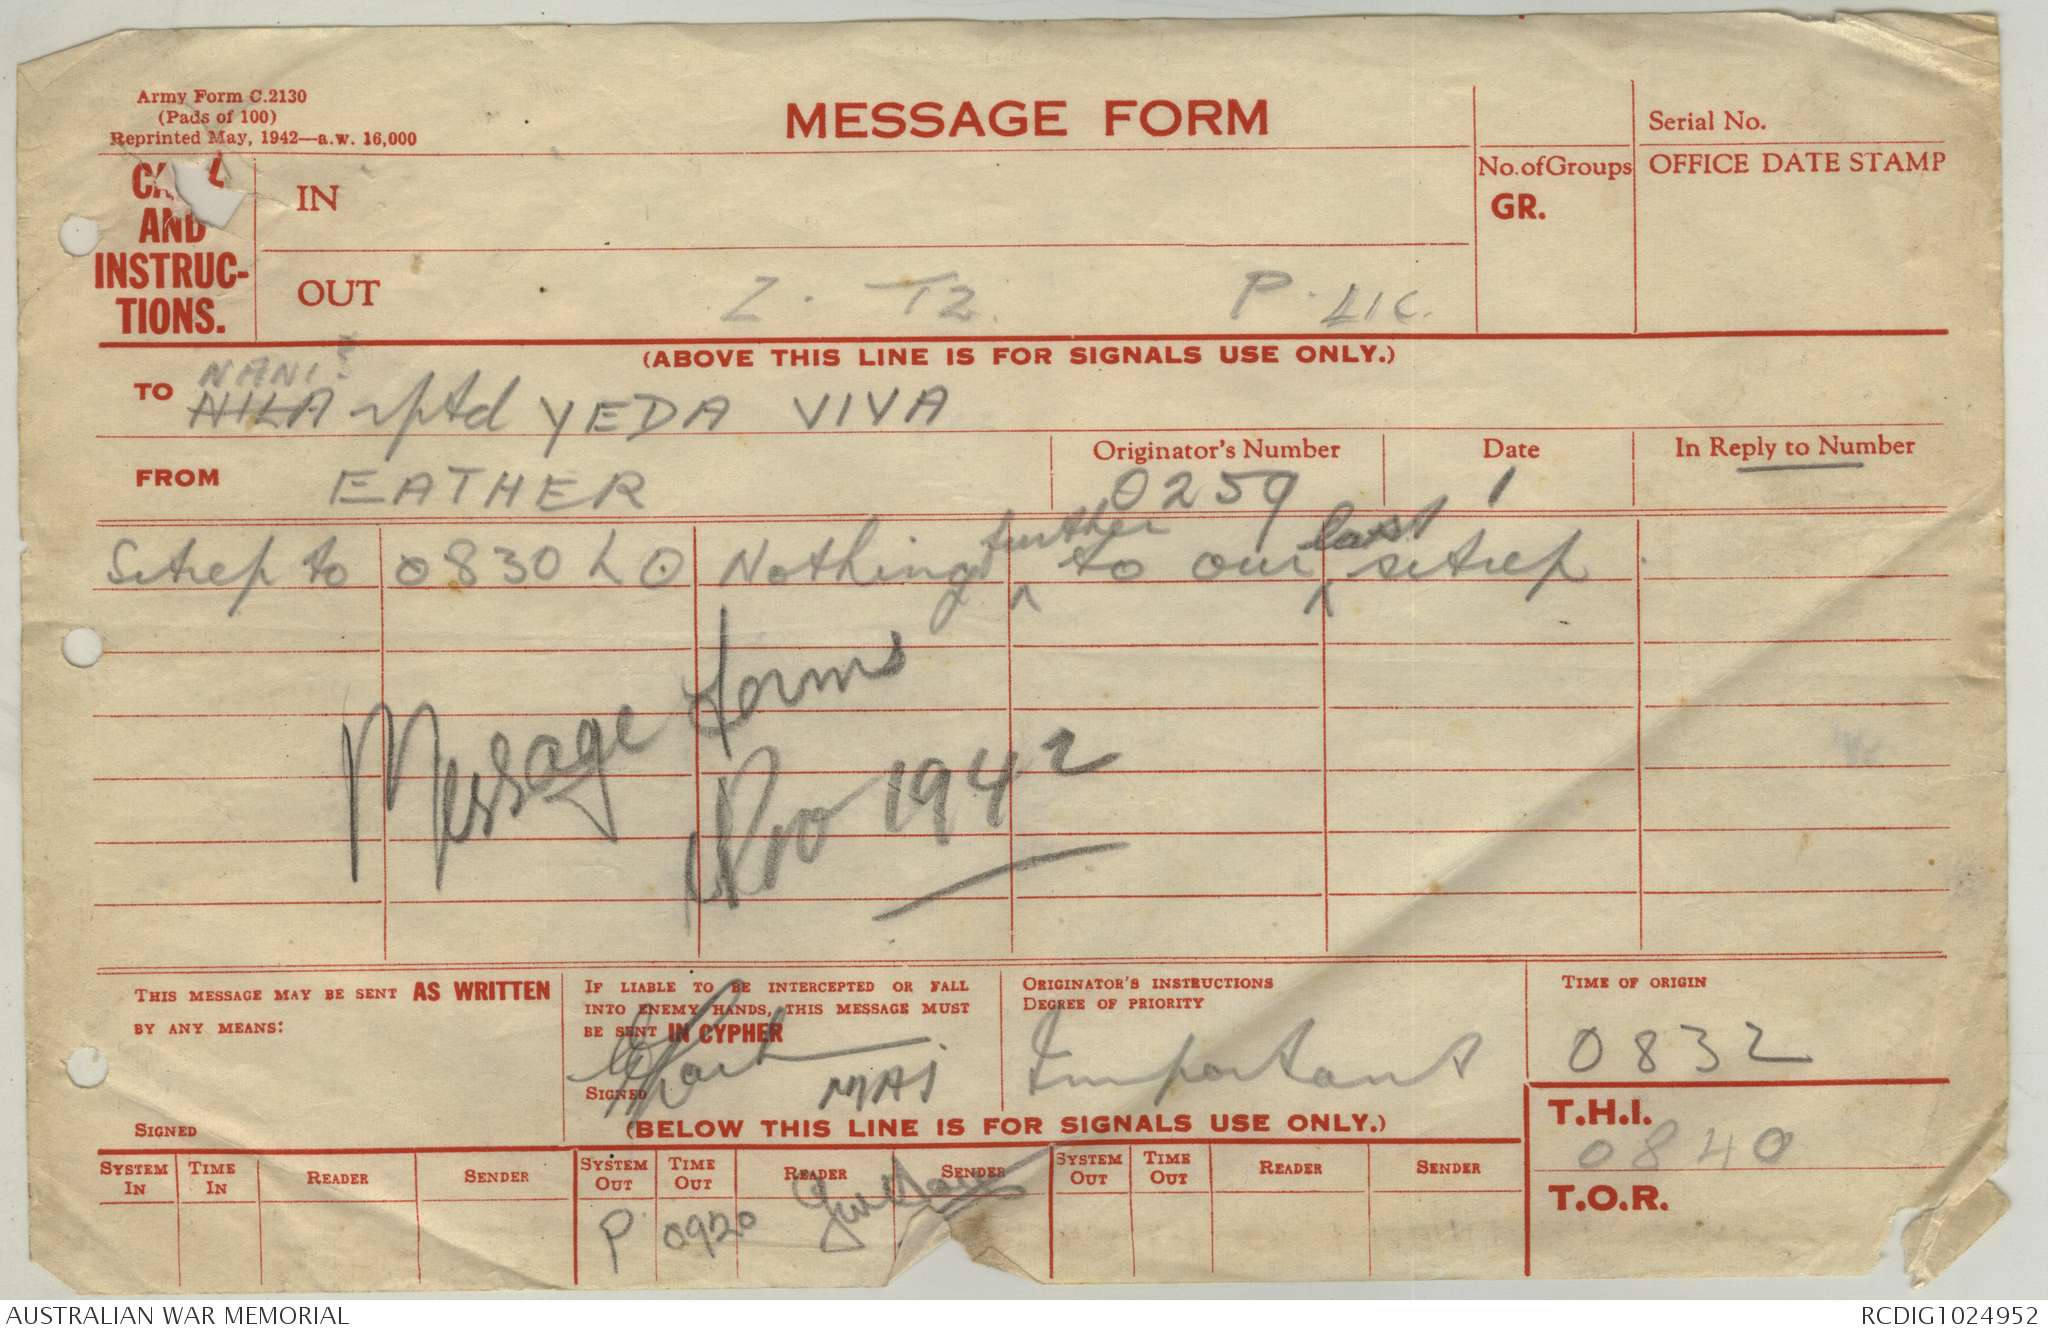 Army Form C.2130
(Pads of 100)
Reprinted May, 1942—a.w. 16,000
MESSAGE FORM
Serial No.
CALL AND INSTRUC-TIONS.
IN
No. of Groups
GR.
OFFICE DATE STAMP
OUT
Z. T2. P. LIC.
(ABOVE THIS LINE IS FOR SIGNALS USE ONLY.)
NANI
TO NILA rptd YEDA VIVA
FROM EATHER
Originator's Number
0259
Date
1
In Reply to Number
Sitrep to 0830 L O Nothing further to our last sitrep.
Message forms
Nov 1942
THIS MESSAGE MAY BE SENT AS WRITTEN
BY ANY MEANS:
SIGNED
IF LIABLE TO BE INTERCEPTED OR FALL
INTO ENEMY HANDS, THIS MESSAGE MUST
BE SENT IN CYPHER
SIGNED
MAJ
ORIGINATOR'S INSTRUCTIONS
DEGREE OF PRIORITY
Important
TIME OF ORIGIN
0832
(BELOW THIS LINE IS FOR SIGNALS USE ONLY.)
T.H.I.
0840
T.O.R.
SYSTEM IN TIME IN READER SENDER SYSTEM OUT TIME OUT READER SENDER SYSTEM OUT TIME OUT READER SENDER
P 0920
AUSTRALIAN WAR MEMORIAL
RCDIG1024952